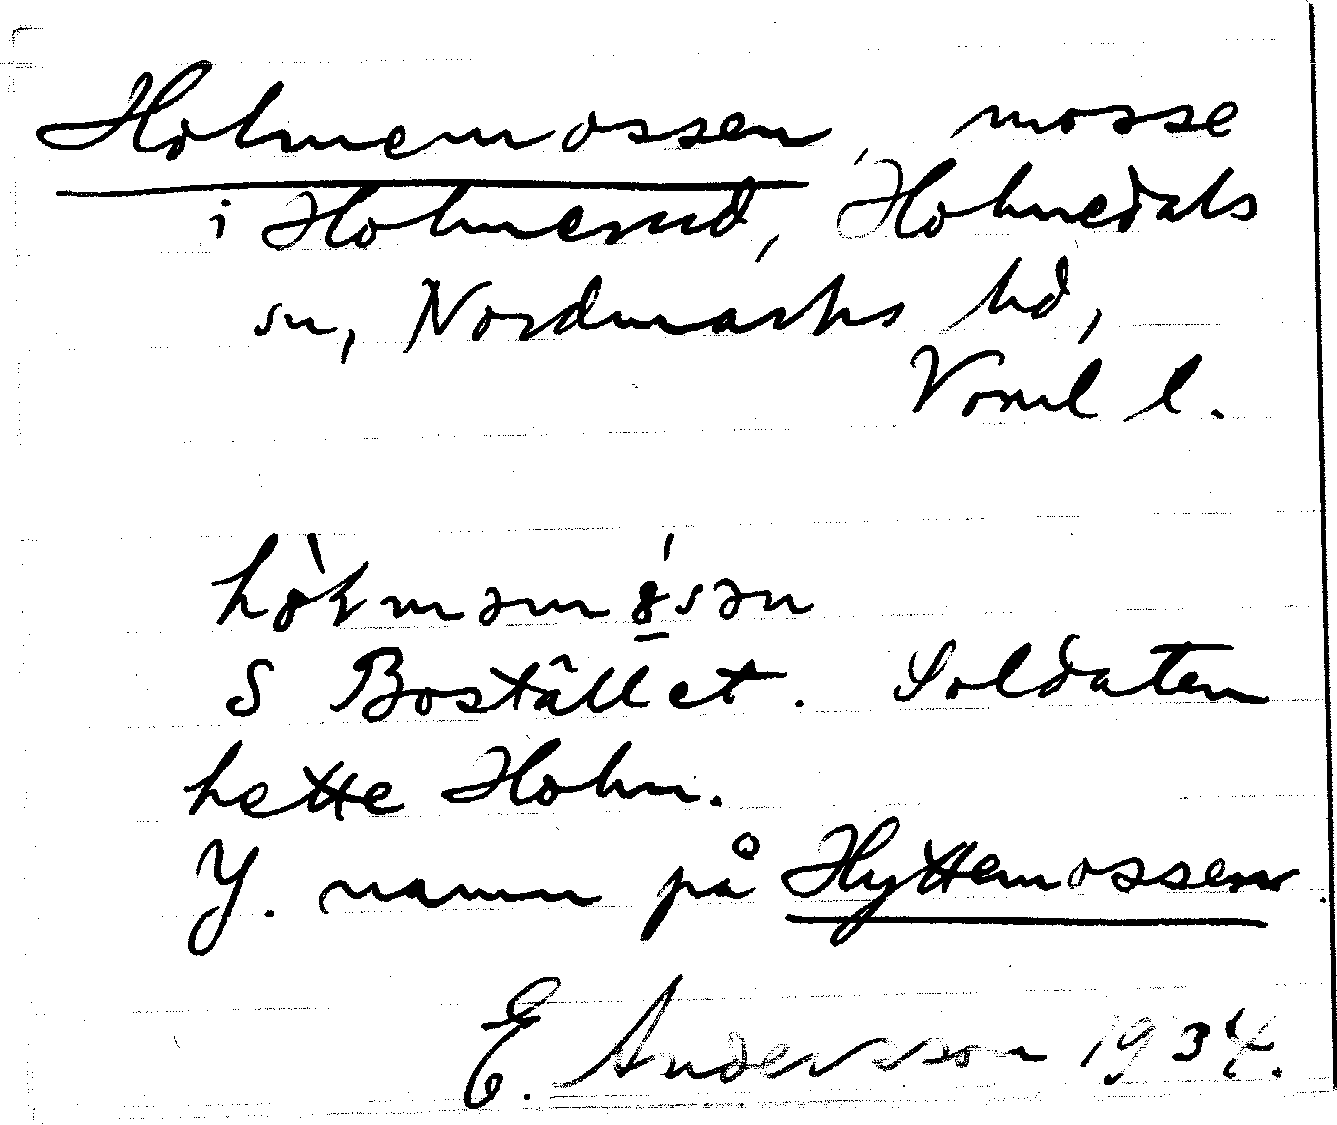 Holmemossen, mosse
i Holmerud, Holmedals
sn, Nordmarks hd,
Värml l.
S Bostället. Soldaten
hette Holm.
Y. namn på Hyttemossen.
E. Andersson 1934.